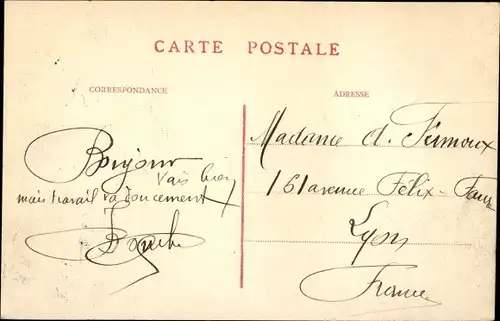 CARTE POSTALE
CORRESPONDANCE
Bonjour
vais bien
mais travail va doucement
ADRESSE
Madame A.
161 avenue Félix-Faure
Lyon
France